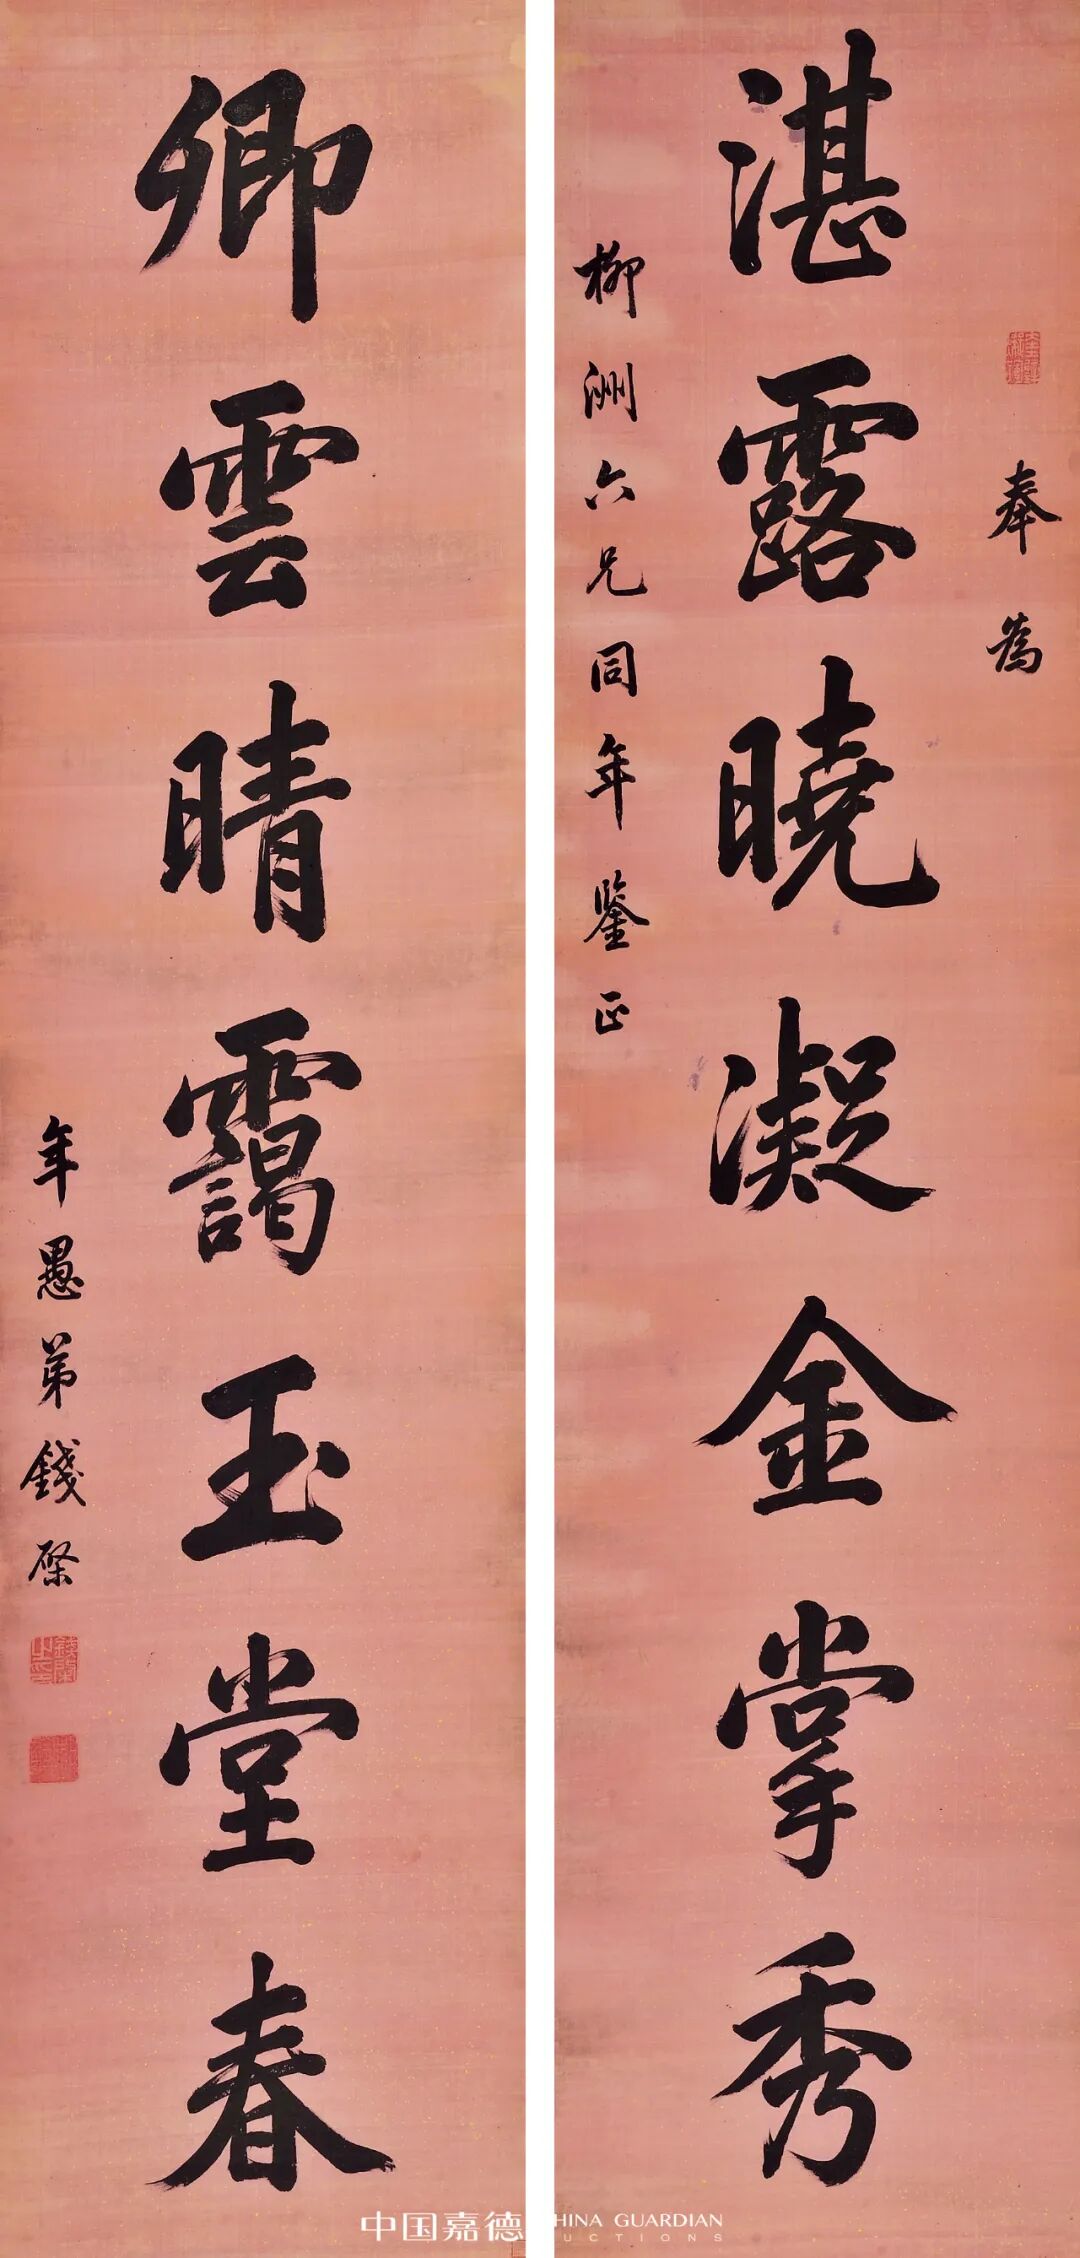 湛露曉凝金掌秀
奉為
柳洲六兄同年鑒正
卿雲晴靄玉堂春
年愚弟錢棨
中国嘉德
CHINA GUARDIAN
AUCTIONS